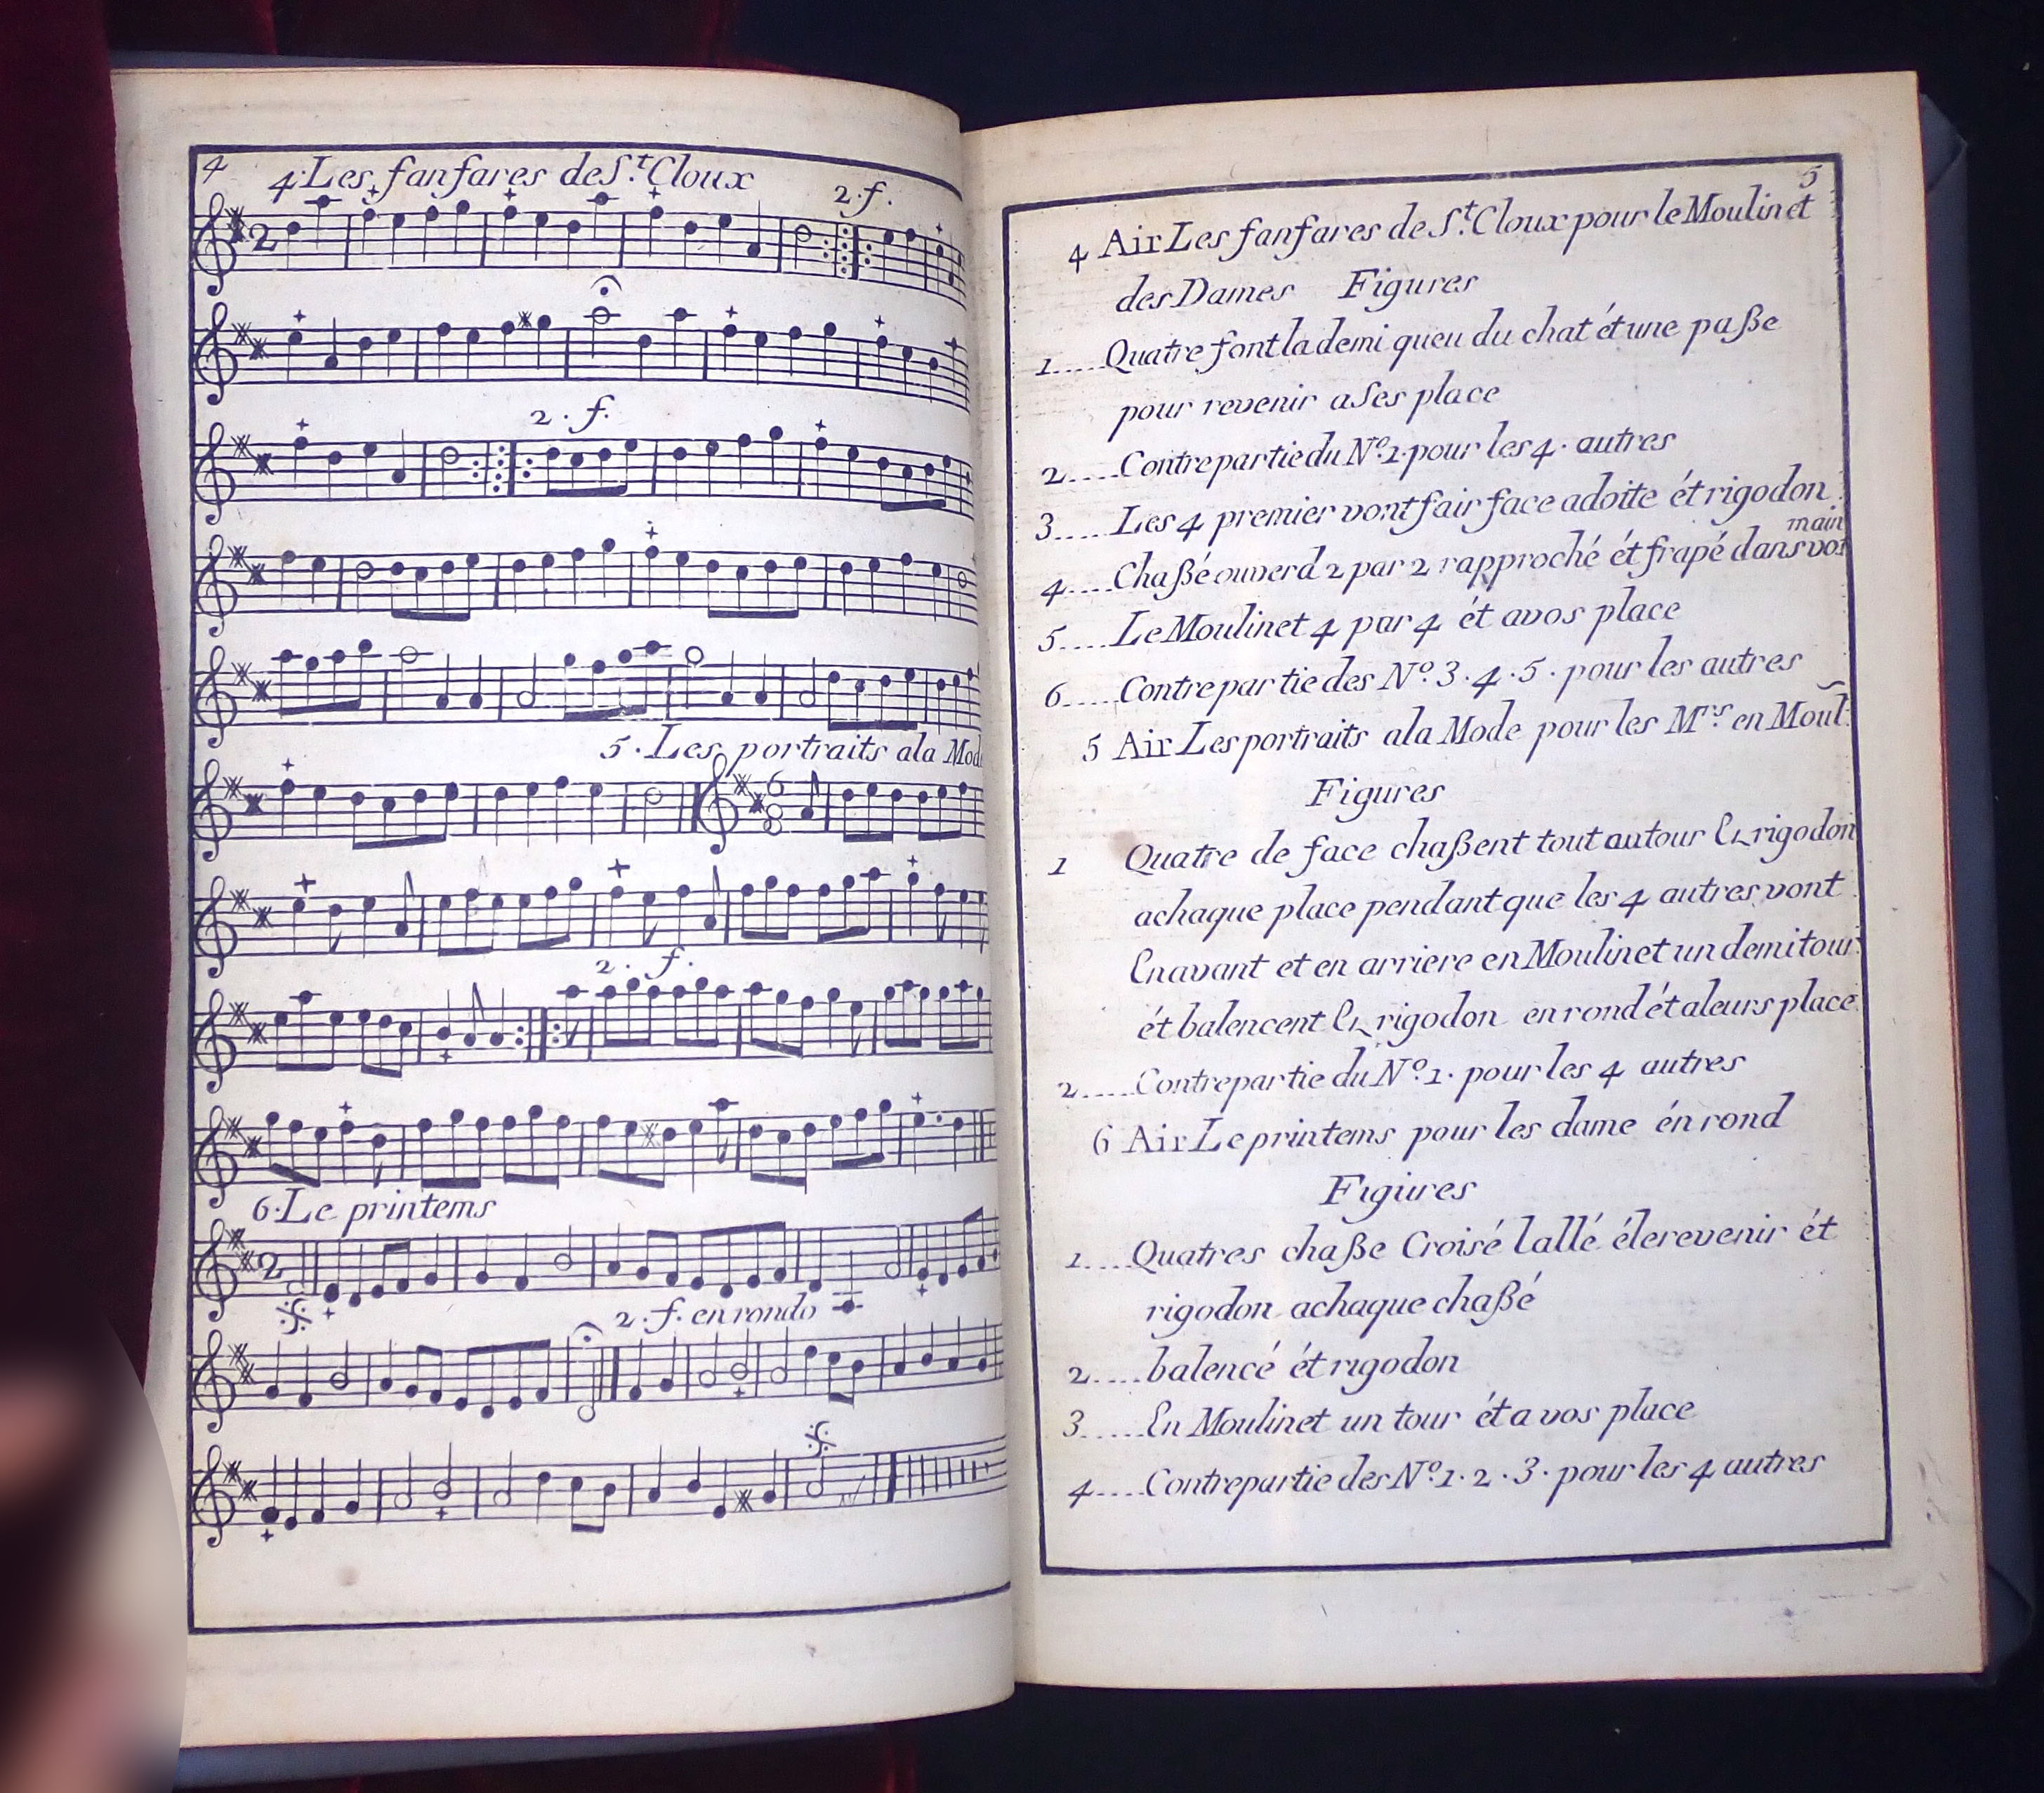 4
4. Les fanfares de S.t Cloux
2. f.
2. f.
5. Les portraits ala Mod
2. f.
6. Le printems
2. f. en rondo
5
4 Air Les fanfares de S.t Cloux pour le Moulinet
des Dames Figures
1..... Quatre font la demi queu du chat ét une paße
pour revenir a Ses place
2..... Contrepartie du N.o 1. pour les 4. autres
3..... Les 4 premier vont fair face adoite ét rigodon
main
4..... Chaßé ouverd 2 par 2 rapproché ét frapé dans vos
5.... Le Moulinet 4 par 4 ét avos place
6..... Contrepartie des N.o 3. 4. 5. pour les autres
5 Air Les portraits ala Mode pour les M.rs en Moul.
Figures
1 Quatre de face chaßent tout autour Et rigodon
achaque place pendant que les 4 autres vont
En avant et en arriere en Moulinet un demi tour
ét balencent Et rigodon en rond ét aleurs place
2..... Contrepartie du N.o 1. pour les 4 autres
6 Air Le printems pour les dame én rond
Figures
1.... Quatres chaße Croisé lallé éle revenir ét
rigodon achaque chaßé
2.... balencé ét rigodon
3..... En Moulinet un tour ét a vos place
4.... Contrepartie des N.o 1. 2. 3. pour les 4 autres